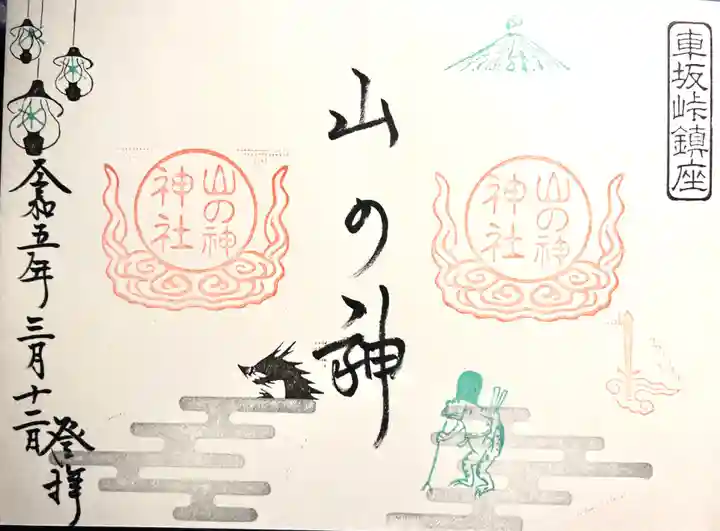 車坂峠鎮座
山の神
神社
山の神
山の神
神社
令和五年 三月 十二日
登拝